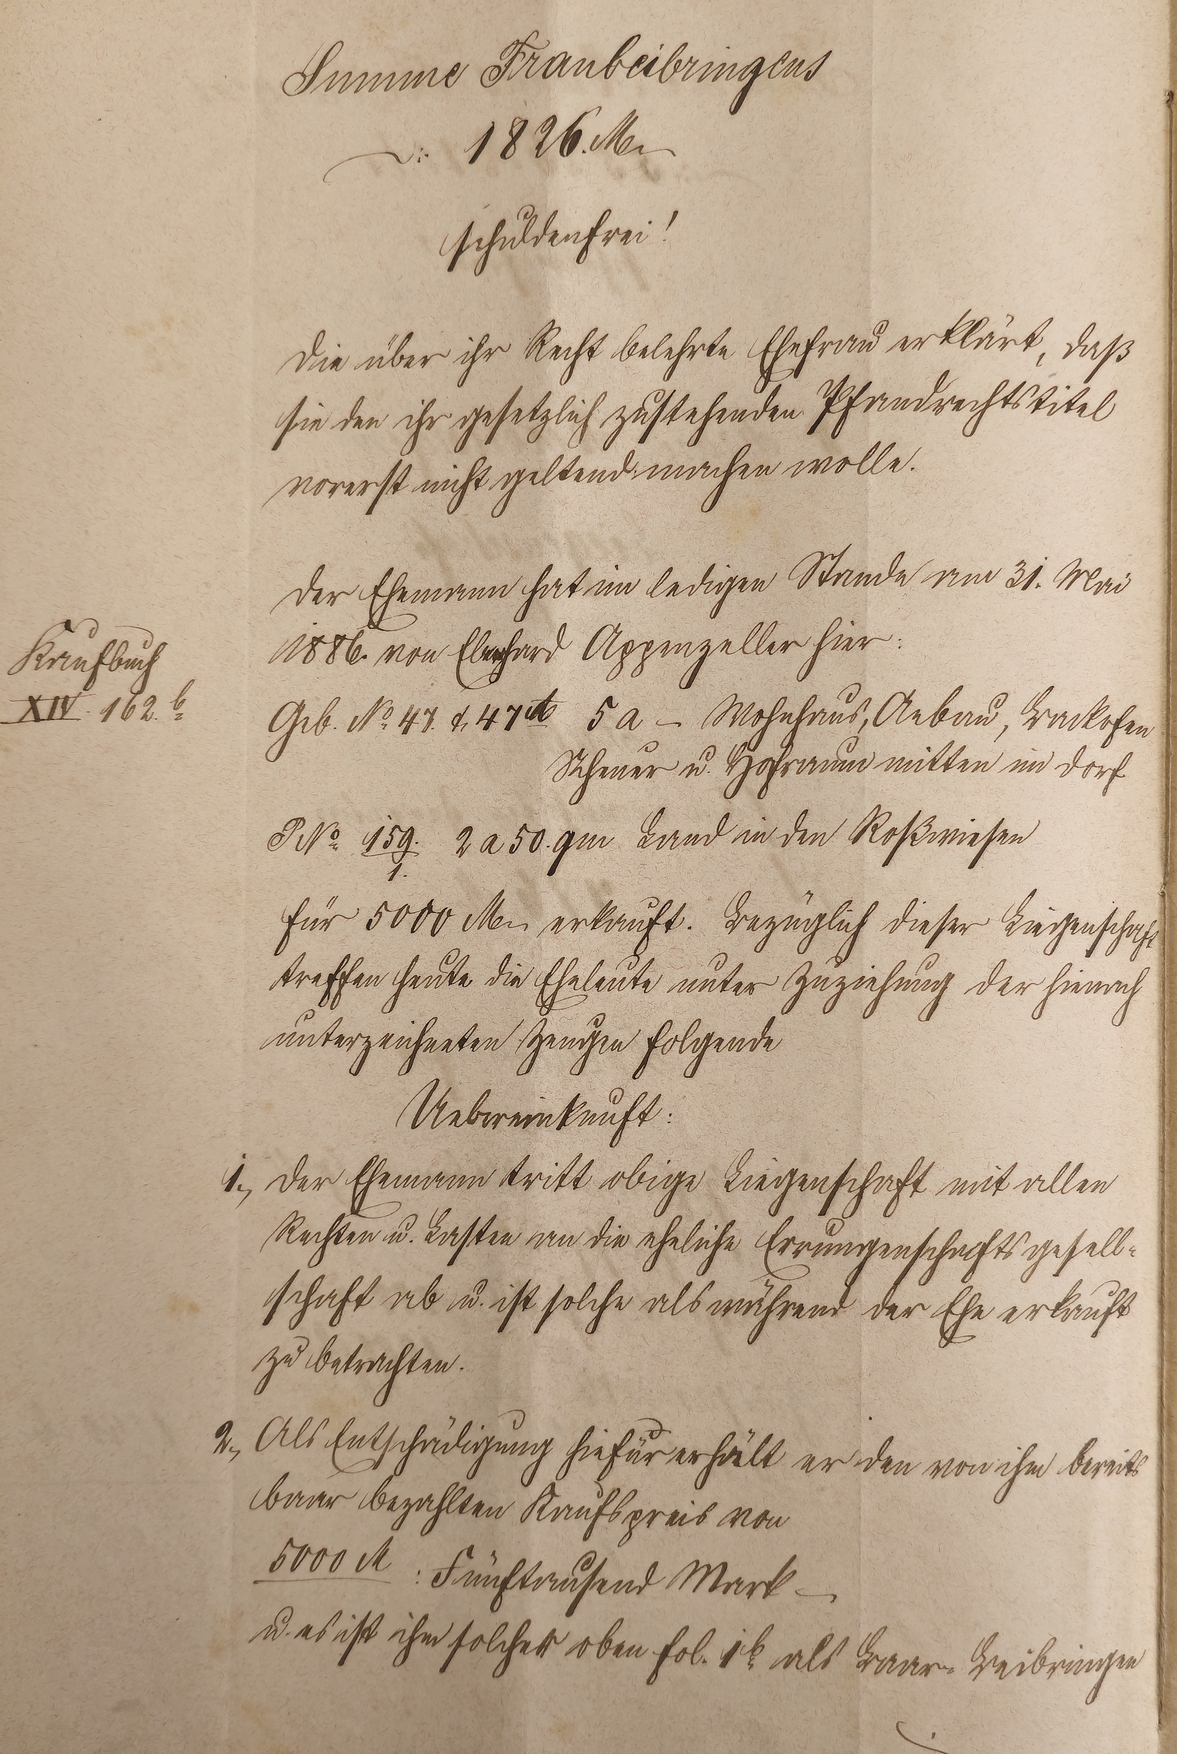 Summe Fraubeibringens
1826. M.
schuldenfrei!
Die über ihr Recht belehrte Ehefrau erklärt, daß
sie den ihr gesetzlich zustehenden Pfandrechtstitel
vorerst nicht geltend machen wolle.
Der Ehemann hat im ledigen Stande am 31. Mai
1886. von Eberhard Appenzeller hier:
Kaufbuch
XIV. 162. b.
Geb. No. 47 & 47A 5 a – Wohnhaus, Anbau, Backofen
Scheuer u. Hofraum mitten im Dorf
P No. 159./1. 2 a 50. qm Land in den Roßwiesen
für 5000 M. erkauft. Bezüglich dieser Liegenschaft
treffen heute die Eheleute unter Zuziehung der hienach
unterzeichneten Zeugen folgende
Uebereinkunft:
1., Der Ehemann tritt obige Liegenschaft mit allen
Rechten u. Lasten an die eheliche Errungenschaftsgesell-
schaft ab u. ist solche als während der Ehe erkauft
zu betrachten.
2., Als Entschädigung hiefür erhält er den von ihm bereits
baar bezahlten Kaufspreis von
5000 M : Fünftausend Mark –
u. es ist ihm solcher oben fol. 1b. als Baar-Beibringen